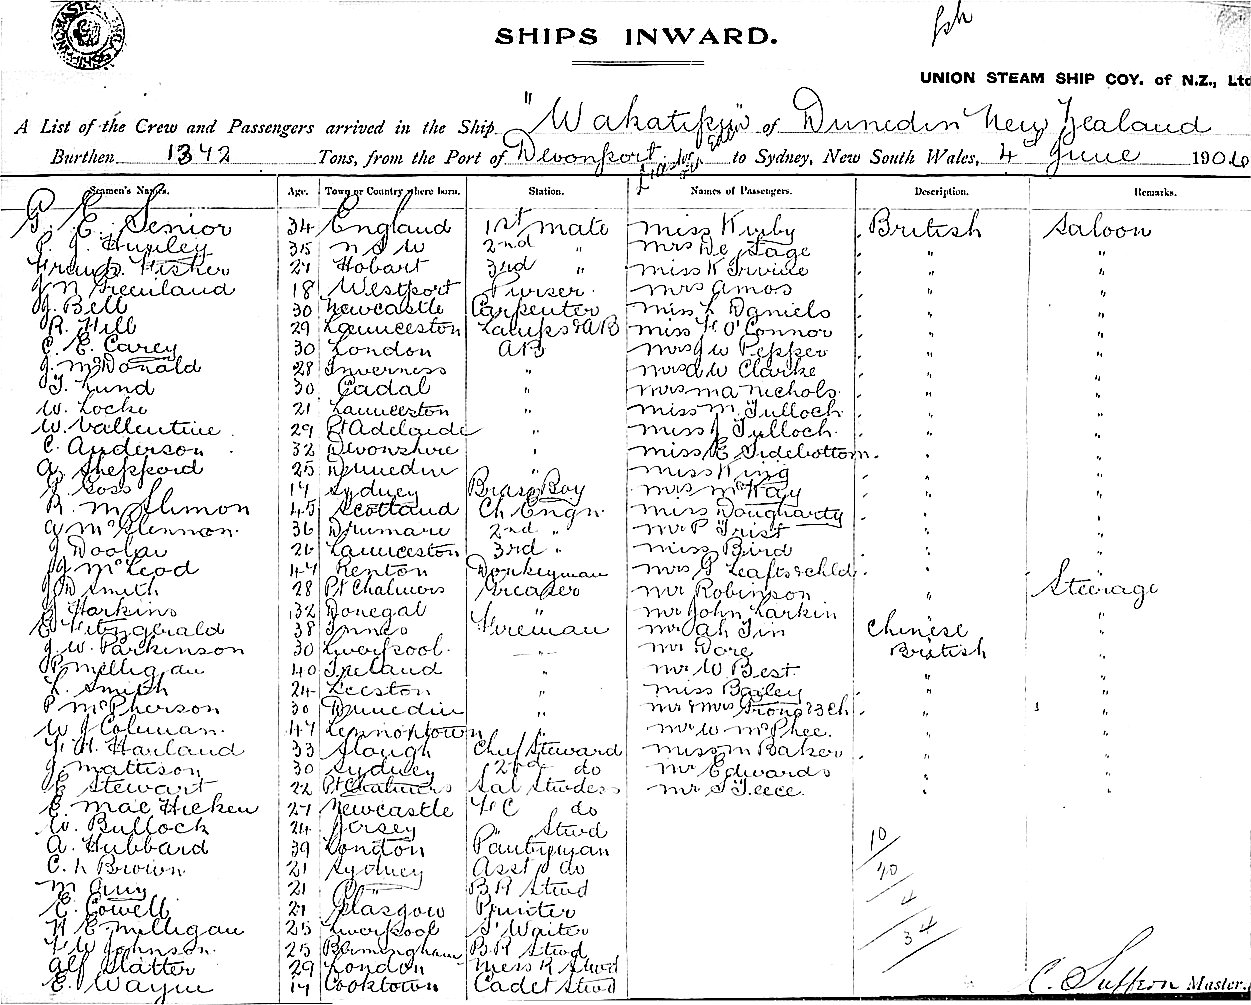 SHIPS INWARD.
UNION STEAM SHIP COY. of N.Z., Ltd
A List of the Crew and Passengers arrived in the Ship "Wakatipu" of Dunedin New Zealand
Burthen 1342 Tons, from the Port of Devonport to Sydney, New South Wales, 4th June 190
Seamen's Names. Age. Town or Country where born. Station. Names of Passengers. Description. Remarks.
E. Senior 34 England 1st mate Miss Kirby British Saloon
P. J. Huxley 35 N S W 2nd " Mrs De " "
Frank Fisher 27 Hobart 3rd " Miss K Irvine " "
J. N Greenland 18 Westport Purser Mrs Amos " "
J. Bell 30 Newcastle Carpenter Miss L Daniels " "
R. Hill 29 Launceston Lamps & AB Miss O'Connor " "
C. E. Carey 30 London AB Mrs J W Pepper " "
J. McDonald 28 Inverness " Mrs A W Clarke " "
T. Lund 30 Cadal " Mrs M A Nichols " "
W. Locke 21 Launceston " Miss M. Tulloch " "
W. Vallentine 29 Pt Adelaide " Miss J Tulloch " "
C. Anderson 32 Devonshire " Miss E Sidebottom " "
A. Sheppord 25 Dunedin " Miss King " "
Goss 17 Sydney Brass Boy Mrs McKay " "
R. McSlimon 45 Scotland Ch Engn. Miss Dougharty " "
A McGlennon 36 2nd " Mr P Trist " "
J Doolan 26 Launceston 3rd " Miss Bird " "
J McLeod 47 Renton Donkeyman Mrs G & chld " "
D Smith 28 Pt Chalmers Greaser Mr Robinson " Steerage
J Harkins 32 Donegal " Mr John Larkin " "
E Fitzgerald 38 Fireman Mr Ah Tin Chinese "
J. W. Parkinson 30 Liverpool " Mr Dore British "
P Milligan 40 Ireland " Mr W Best " "
L. Smith 24 Leeston " Miss Bailey " "
P McPherson 30 Dunedin " Mr & Mrs & 3 Ch " "
W J Columan 47 Lennoxtown " Mr W McPhee. " "
F. H. Harland 33 Slough Chief Steward Miss M Baker " "
J Mattison 30 Sydney 2nd do Mr Edwards " "
E Stewart 22 Pt Chalmers Sal Stwdess Mr S Teece " "
E. MacHicken 27 Newcastle F C do
W. Bullock 24 Jersey Stwd
A. Hubbard 39 London Pantryman
C. L Brown 21 Sydney Asst do
M Guy 21 " B R Stwd
E. Cowell 21 Glasgow Printer
H E Milligan 25 Liverpool S' Waiter
F W Johnson 25 Birmingham B.R Stwd
Alf Slatter 29 London Mess R Stwd
E. Wayne 17 Cooktown Cadet Stwd
10
20
4
34
C. Suffern Master.